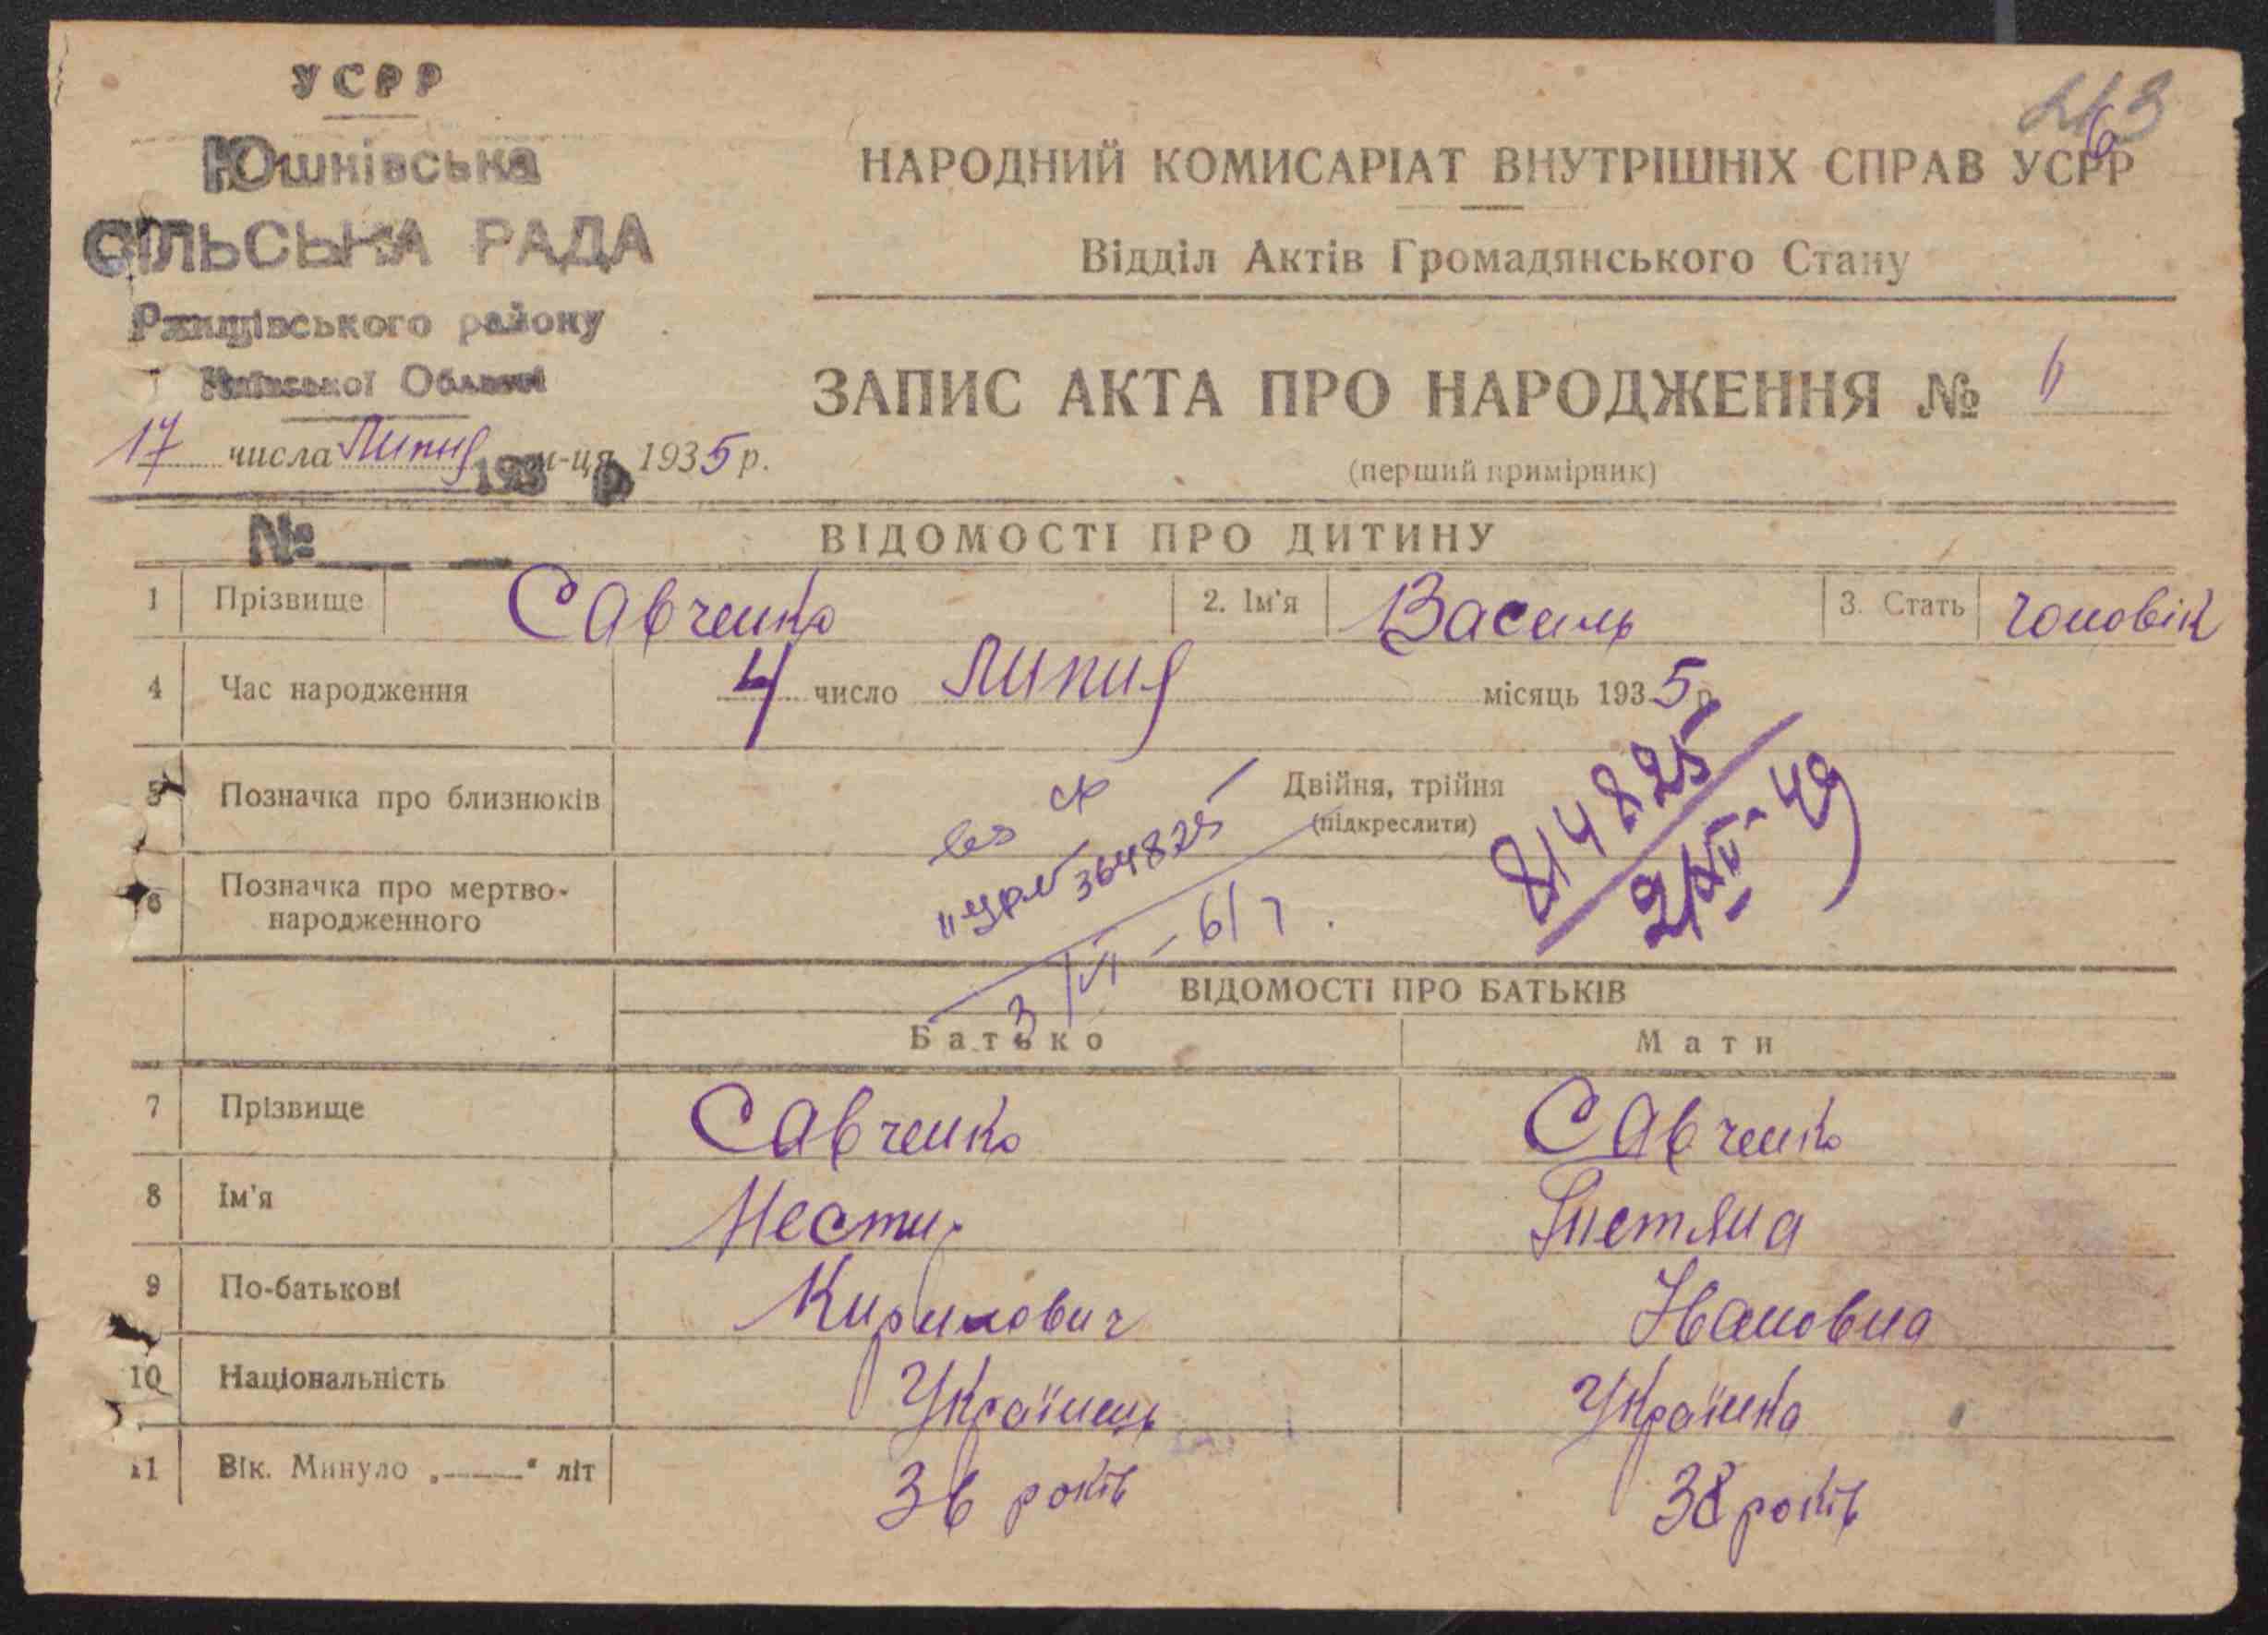 УСРР
Юшківська
СІЛЬСЬКА РАДА
Ржищівського району
Київської Області
17 числа Липня м-ця 1935 р.
193 р.
№
243
6
НАРОДНИЙ КОМИСАРІАТ ВНУТРІШНІХ СПРАВ УСРР
Відділ Актів Громадянського Стану
ЗАПИС АКТА ПРО НАРОДЖЕННЯ № 6
(перший примірник)
ВІДОМОСТІ ПРО ДИТИНУ
1 Прізвище Савченко 2. Ім'я Василь 3. Стать чоловік
4 Час народження 4 число Липня місяць 1935 р.
5 Позначка про близнюків Двійня, трійня
(підкреслити)
814825
2/VI-49
364825
3/VI - 61
6 Позначка про мертво-
народженного
ВІДОМОСТІ ПРО БАТЬКІВ
Батько Мати
7 Прізвище Савченко Савченко
8 Ім'я Нестир
9 По-батькові Кирилович Івановна
10 Національність Українець Українка
11 Вік. Минуло „——“ літ 36 років 38 років